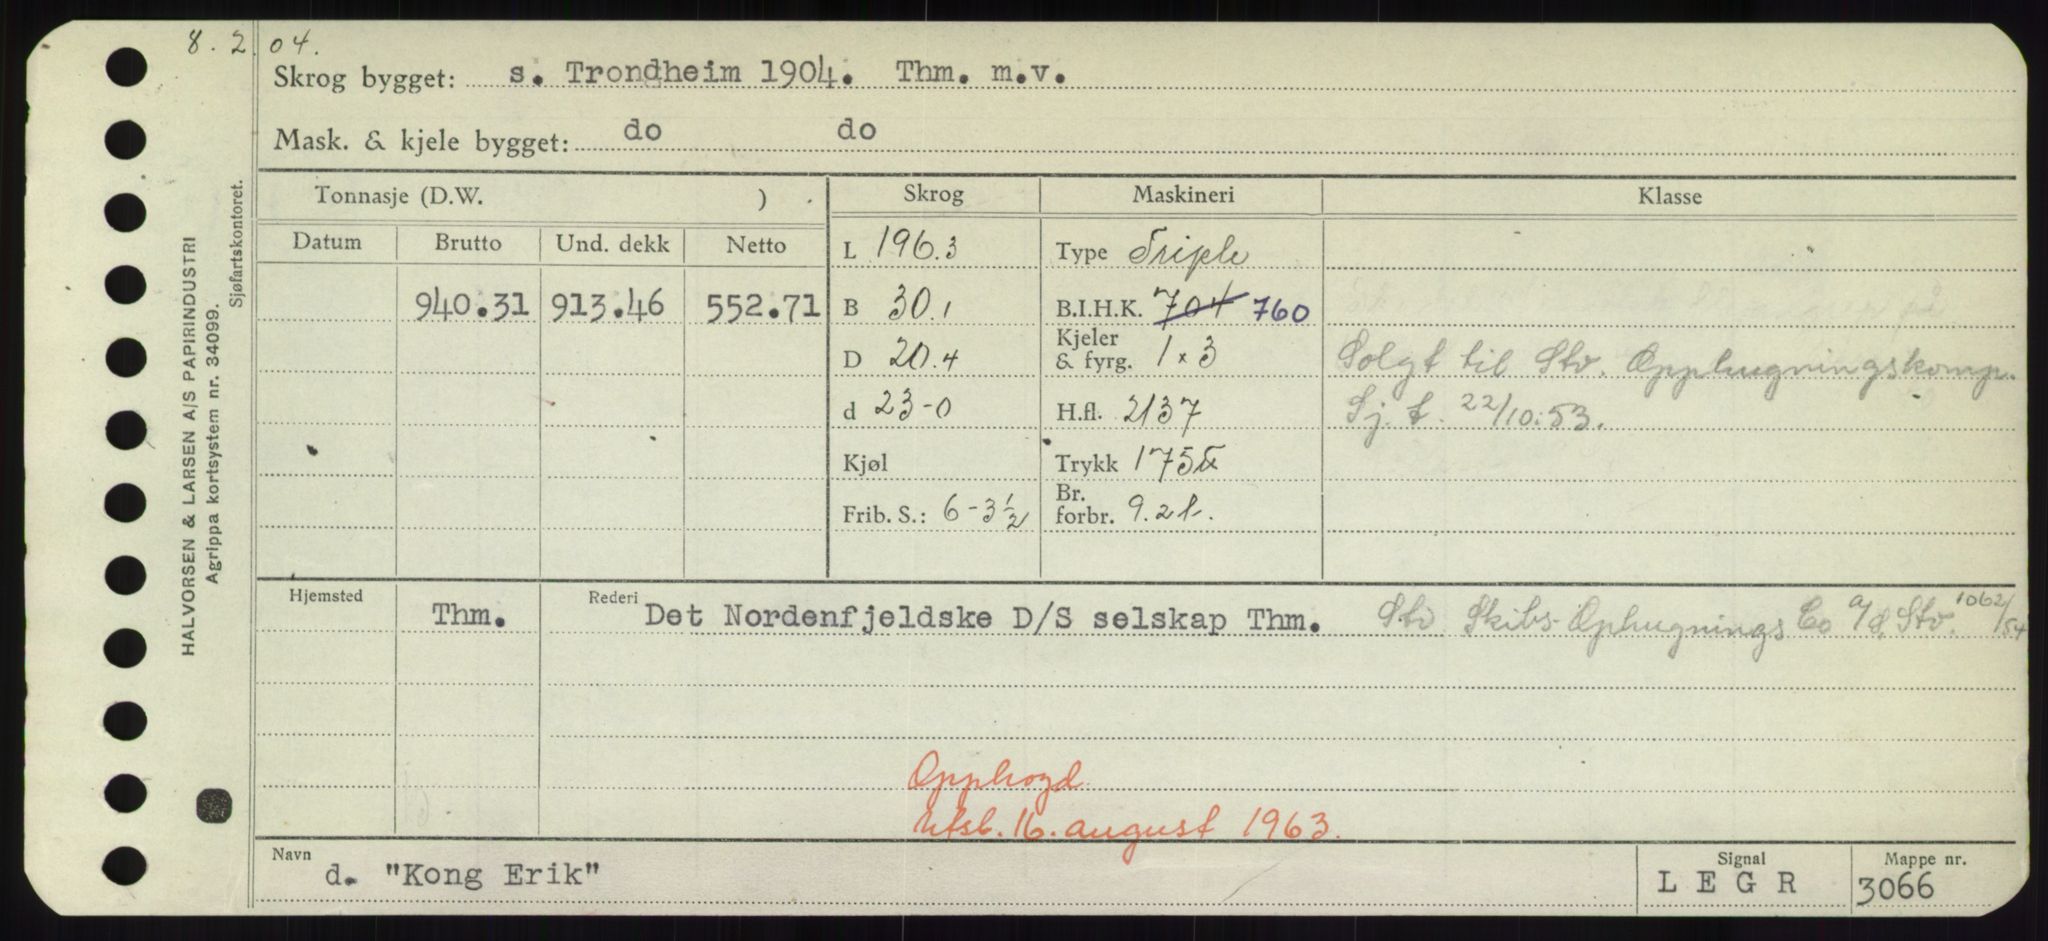 8. 2. 04.
Skrog bygget: s. Trondheim 1904. Thm. m.v.
Mask. & kjele bygget: do do
Tonnasje (D.W. ) Skrog Maskineri Klasse
Datum Brutto Und. dekk Netto L 196.3 Type Triple
940.31 913.46 552.71 B 30.1 B.I.H.K. 704 760
D 20.4 Kjeler & fyrg. 1 x 3 Solgt til Stv. Opphugningskomp.
d 23-0 H.fl. 2137 Sj. f. 22/10.53.
Kjøl Trykk 175 lb
Frib. S.: 6-3½ Br. forbr. 9.2 t.
Hjemsted Thm. Rederi Det Nordenfjeldske D/S selskap Thm. Stv Skibs-Ophugnings Co A/S, Stv. 1062/54
Opphogd
utsl. 16. august 1963.
Navn d. "Kong Erik" Signal LEGR Mappe nr. 3066
HALVORSEN & LARSEN A/S PAPIRINDUSTRI
Agrippa kortsystem nr. 34099.
Sjøfartskontoret.